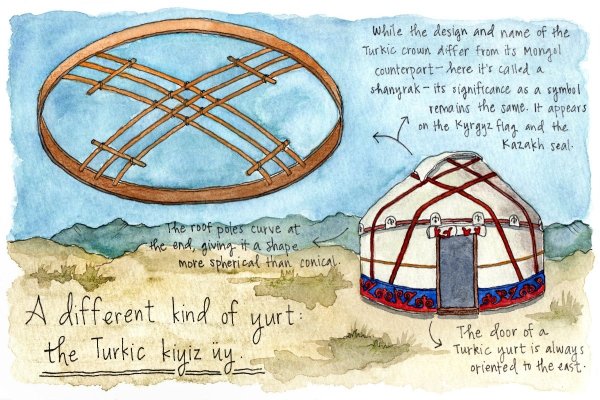 While the design and name of the
Turkic crown differ from its Mongol
counterpart—here it's called a
shanyrak—its significance as a symbol
remains the same. It appears
on the Kyrgyz flag and the
Kazakh seal.
The roof poles curve at
the end, giving it a shape
more spherical than conical.
A different kind of yurt:
the Turkic kiyiz üy.
The door of a
Turkic yurt is always
oriented to the east.